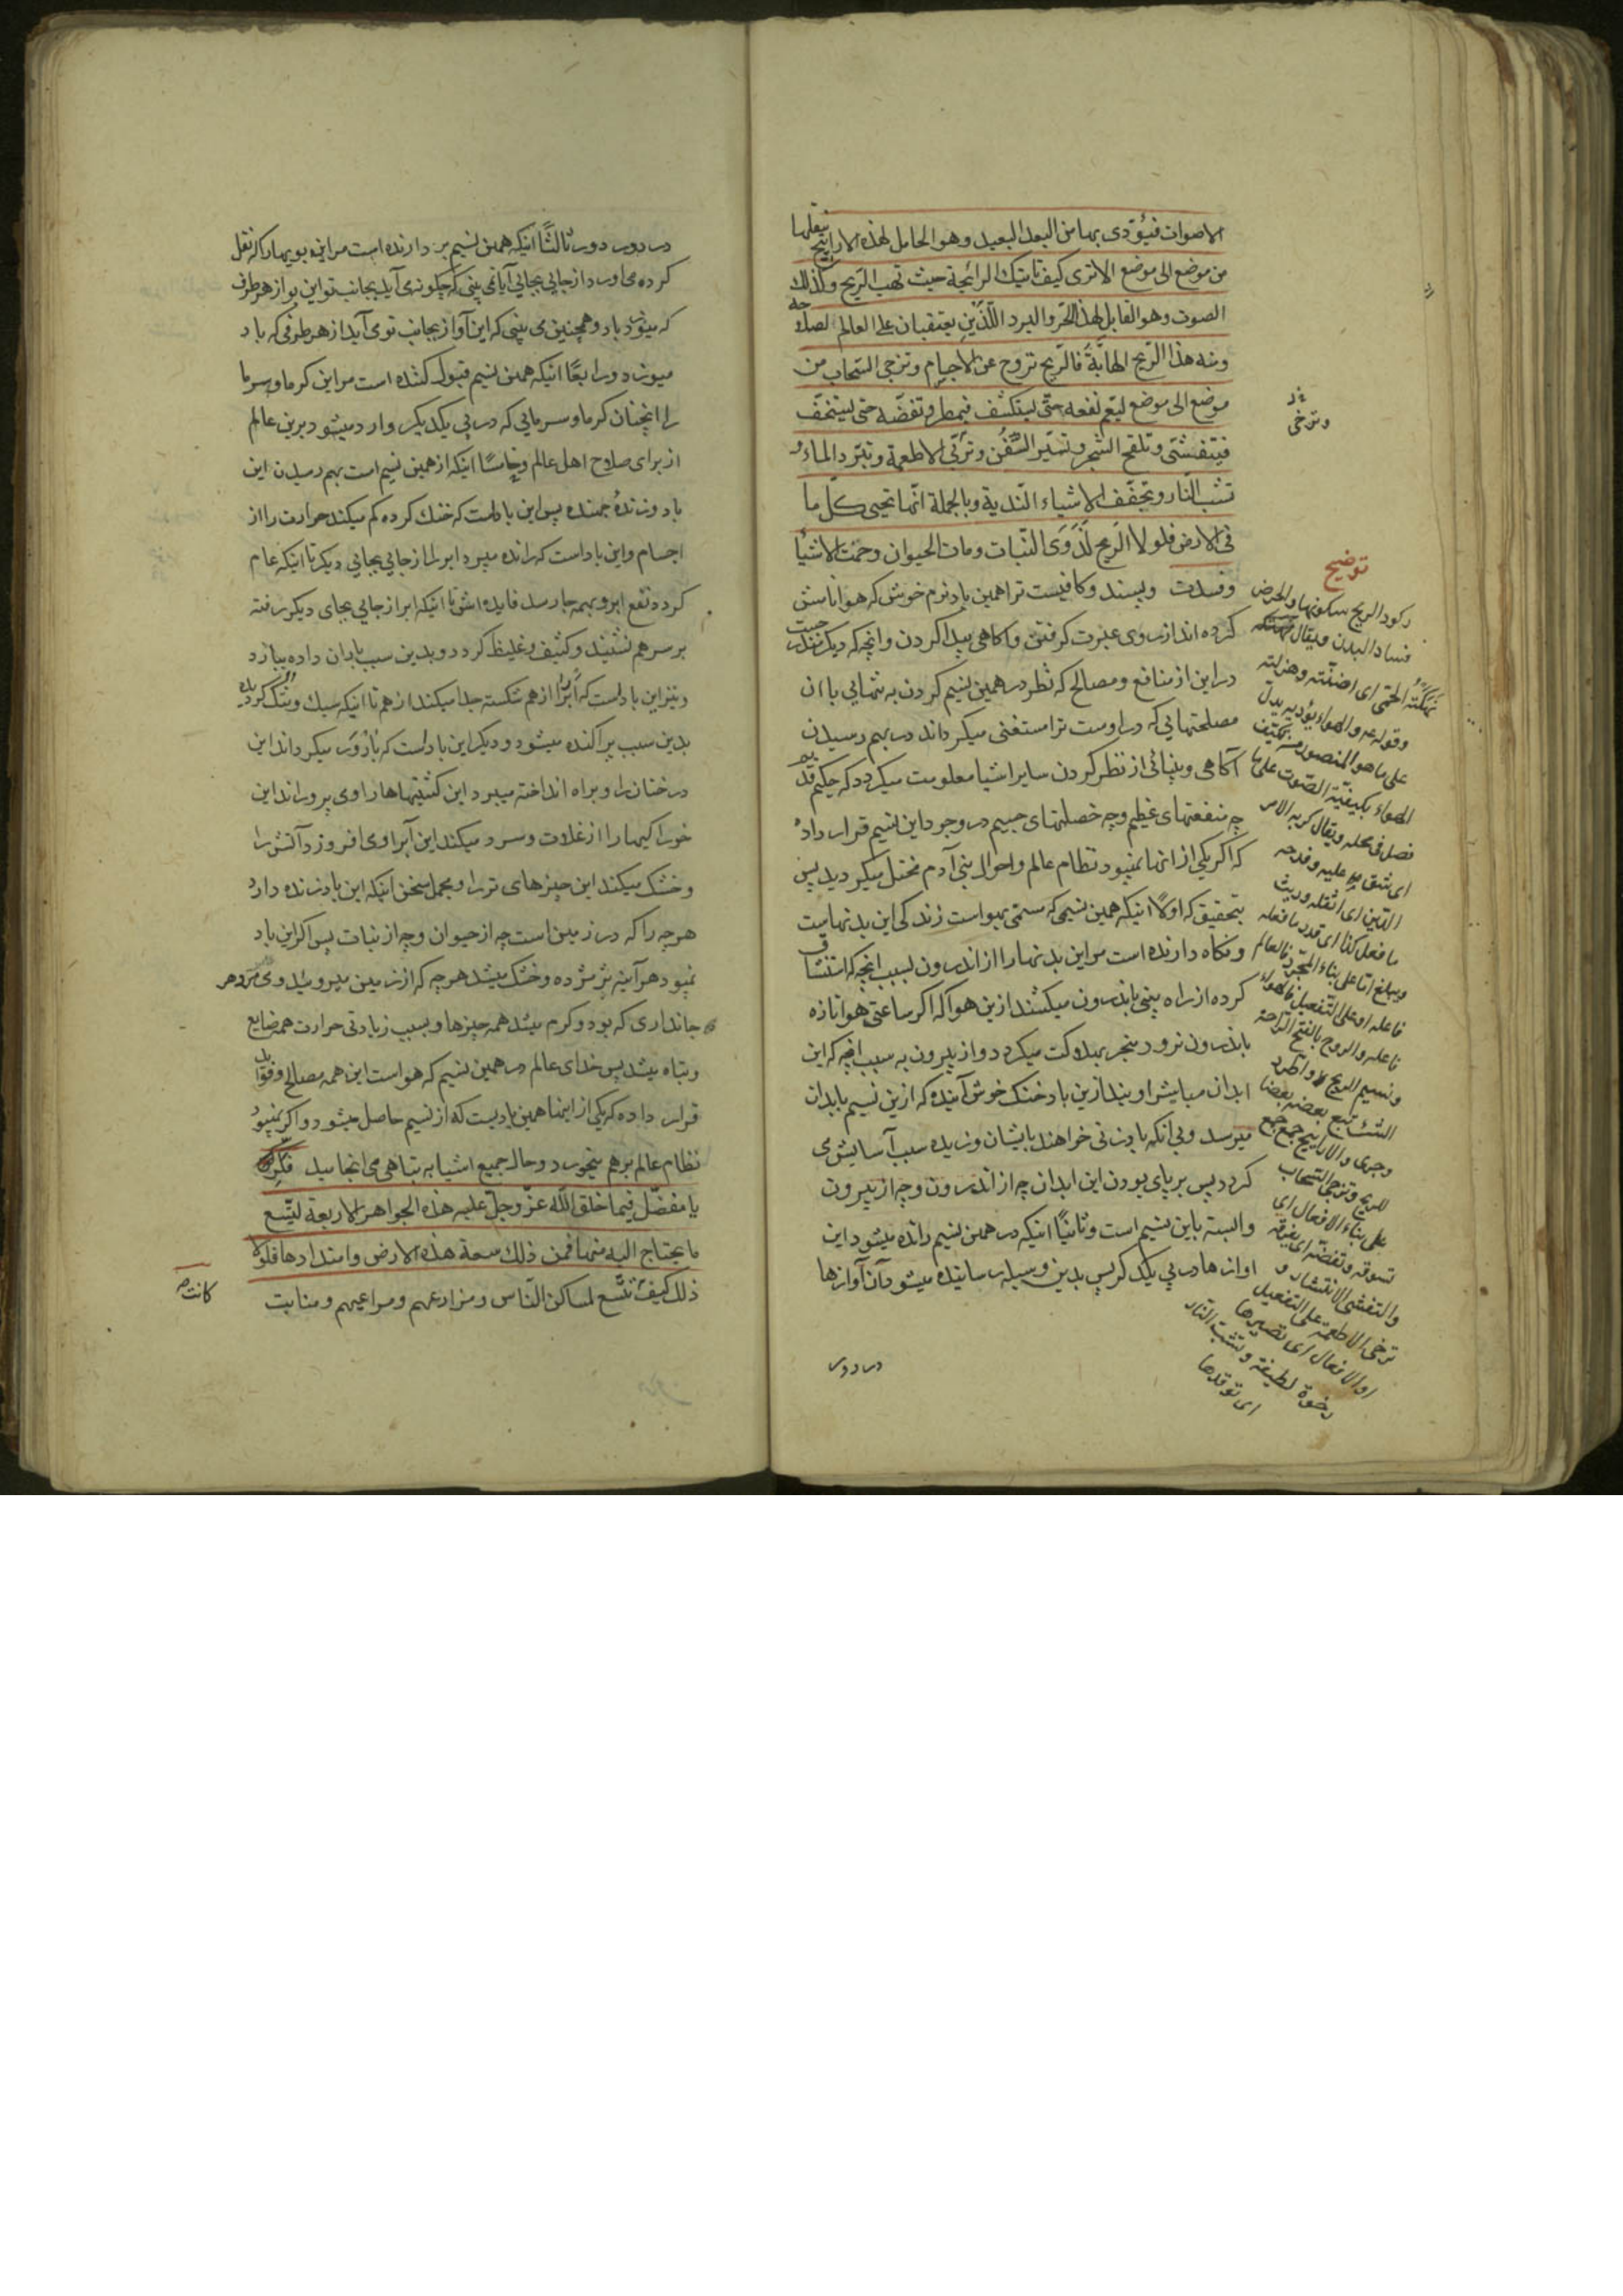 الاصوات فيؤدى بها من البعد البعيد وهو الحامل لهذه الاراييح ينقلها
من موضع الى موضع الا ترى كيف تاتيك الرائحة حيث تهب الريح وكذلك
الصوت وهو القابل لهذا الحرّ والبرد اللّذَين يعتقبان على العالم لصلاحه
ومنه هذا الرّيح الهابّة فالرّيح تروح عن الاجسام وتزجى السّحاب من
موضع الى موضع ليعم نفعه حتّى يستكثف فيمطر وتفضّه حتى يستخفّ
فيتفشّى وتلقح الشجر وتسيّر السُّفُن وترخى الاطعمة وتبرّد الماء و
تشب النّار وتجفّف الاشياء النّدية وبالجملة انّها تحيى كلّ ما
فى الارض فلولا الرّيح لَذَوَى النّبات ومات الحيوان وحمّت الاشياء
وفسدت وبسند وكافيست ترا همين باد نرم خوش كه هوا نامش
كرده اند از روى عبرت كرفتن واكاهى پيدا كردن وانچه كه ديكر نفقد رحيت
در اين از منافع ومصالح كه نظر در همين نسيم كردن به تنهايى با ان
مصلحتهايى كه در اوست ترا مستغنى ميكرداند در بهم رسيدن
آكاهى وبينائى از نظر كردن ساير اشيا معلومت ميكردد كه حكيم قدير
چه منفعتهاى عظيم وچه خصلتهاى جسيم در وجود اين نسيم قرار داده
كه اكر يكى از انها نميبود نظام عالم واحوال بنى آدم مختل ميكرديد پس
بتحقيق كه اولاً اينكه همين نسيمى كه مسمّى بهواست زندكى اين بدنهاست
ونكاه دارنده است مر اين بدنها را از اندرون بسبب انچه كه استنشاق
كرده از راه بينى باندرون ميكشند ازين هوا كه اكر ساعتى هوا تازه
باندرون نرود منجر بهلاكت ميكردد واز بيرون به سبب انچه كه اين
ابدان مباشر او يند ازين باد خنك خوش آينده كه ازين نسيم بابدان
ميرسد وبى انكه بادزنى خواهند بايشان وزيده سبب آسايش مى
كردد پس بر پاى بودن اين ابدان چه از اندرون وچه از بيرون
وابسته باين نسيم است وثانياً اينكه در همين نسيم رانده ميشود اين
اوازها در پى يكديكر پس بدين وسيله رسانيده ميشود آن آوازها
در دور
وترخى
توضيح
ركود الريح سكونها والحرض
فساد البدن ويقال نهكته
نَهَكَتْهُ الحمّى اى اضنته وهزلته
وقوله ع والهواء يؤديه يدل
على ما هو المنصور من تكيّف
الهواء بكيفيّة الصوت على ما
فصل فى محله ويقال كربه الامر
اى شق عليه وفدحه
الدّين اى اثقله وريث
ما فعل كذا اى قدر ما فعله
ويبلغ اما على بناء المجرّد فالعالم
فاعله او على التفعيل فالهواء
فاعله والروح بالفتح الراحة
ونسيم الريح واطّرد
الشئ تبع بعضه بعضا
وجرى والاراييح جمع جمع
للريح وتزجى السّحاب
على بناء الافعال اى
تسوقه وتفضه اى تفرقه
والتفشى الانتشار و
ترخى الاطعمة على التفعيل
او الافعال اى تصيرها
رخوة لطيفة وتشبّ النّار
اى توقدها
در دور دور ثالثاً اينكه همين نسيم بر دارنده است مر اين بويها را كه نقل
كرده مى اورد از جايى بجايى آيا نمى بينى كه چكونه مى آيد بجانب تو اين بو از هر طرف
كه ميوزد باد وهمچنين مى بينى كه اين آواز بجانب تو مى آيد از هر طرفى كه باد
ميوزد ورابعاً اينكه همين نسيم قبول كننده است مر اين كرما وسرما
را انچنان كرما وسرمايى كه در پى يكديكر وارد ميشود برين عالم
از براى صلاح اهل عالم وخامساً اينكه از همين نسيم است بهم رسيدن اين
باد وزندهٔ جهنده پس اين باد است كه خنك كرده كم ميكند حرارت را از
اجسام واين باد است كه رانده ميبرد ابر را از جايى بجايى ديكر تا اينكه عام
كردد نفع ابر وبهمه جا رسد فايده اش تا اينكه ابر از جايى بجاى ديكر رفته
بر سر هم نشيند وكثيف وغليظ كردد وبدين سبب باران داده ببارد
ونيز اين باد است كه ابر را از هم شكسته جدا ميكند از هم تا اينكه سبك وتنك كرديده
بدين سبب پراكنده ميشود وديكر اين باد است كه بارور ميكرداند اين
درختان را وبراه انداخته ميبرد اين كشتيها را وى پروراند اين
خوراكيها را از غلات وسرد ميكند اين آبرا وى افروزد آتش را
وخشك ميكند اين چيزهاى تر را ومجمل سخن اينكه اين باد زنده دارد
هر چه را كه در زمين است چه از حيوان وچه از نبات پس اكر اين باد
نميبود هر آينه پژمرده وخشك ميشد هر چه كه از زمين ميروييد ومى مرد هر
جاندارى كه بود وكرم ميشد همه چيزها وبسبب زيادتى حرارت همه ضايع
وتباه ميشد پس خداى عالم در همين نسيم كه هواست اين همه مصالح وفوايد
قرار داده كه يكى از اينها همين باديست كه از نسيم حاصل ميشود واكر نميبود
نظام عالم بر هم ميخورد وحال جميع اشيا به تباهى مى انجاميد فكّر
يا مفضّل فيما خلق اللّه عزّ وجلّ عليه هذه الجواهر الاربعة ليتّسع
ما يحتاج اليه منها فمن ذلك سعة هذه الارض وامتدادها فلولا
ذلك كيف كانت تتّسع لمساكن النّاس ومزارعهم ومراعيهم ومنابت